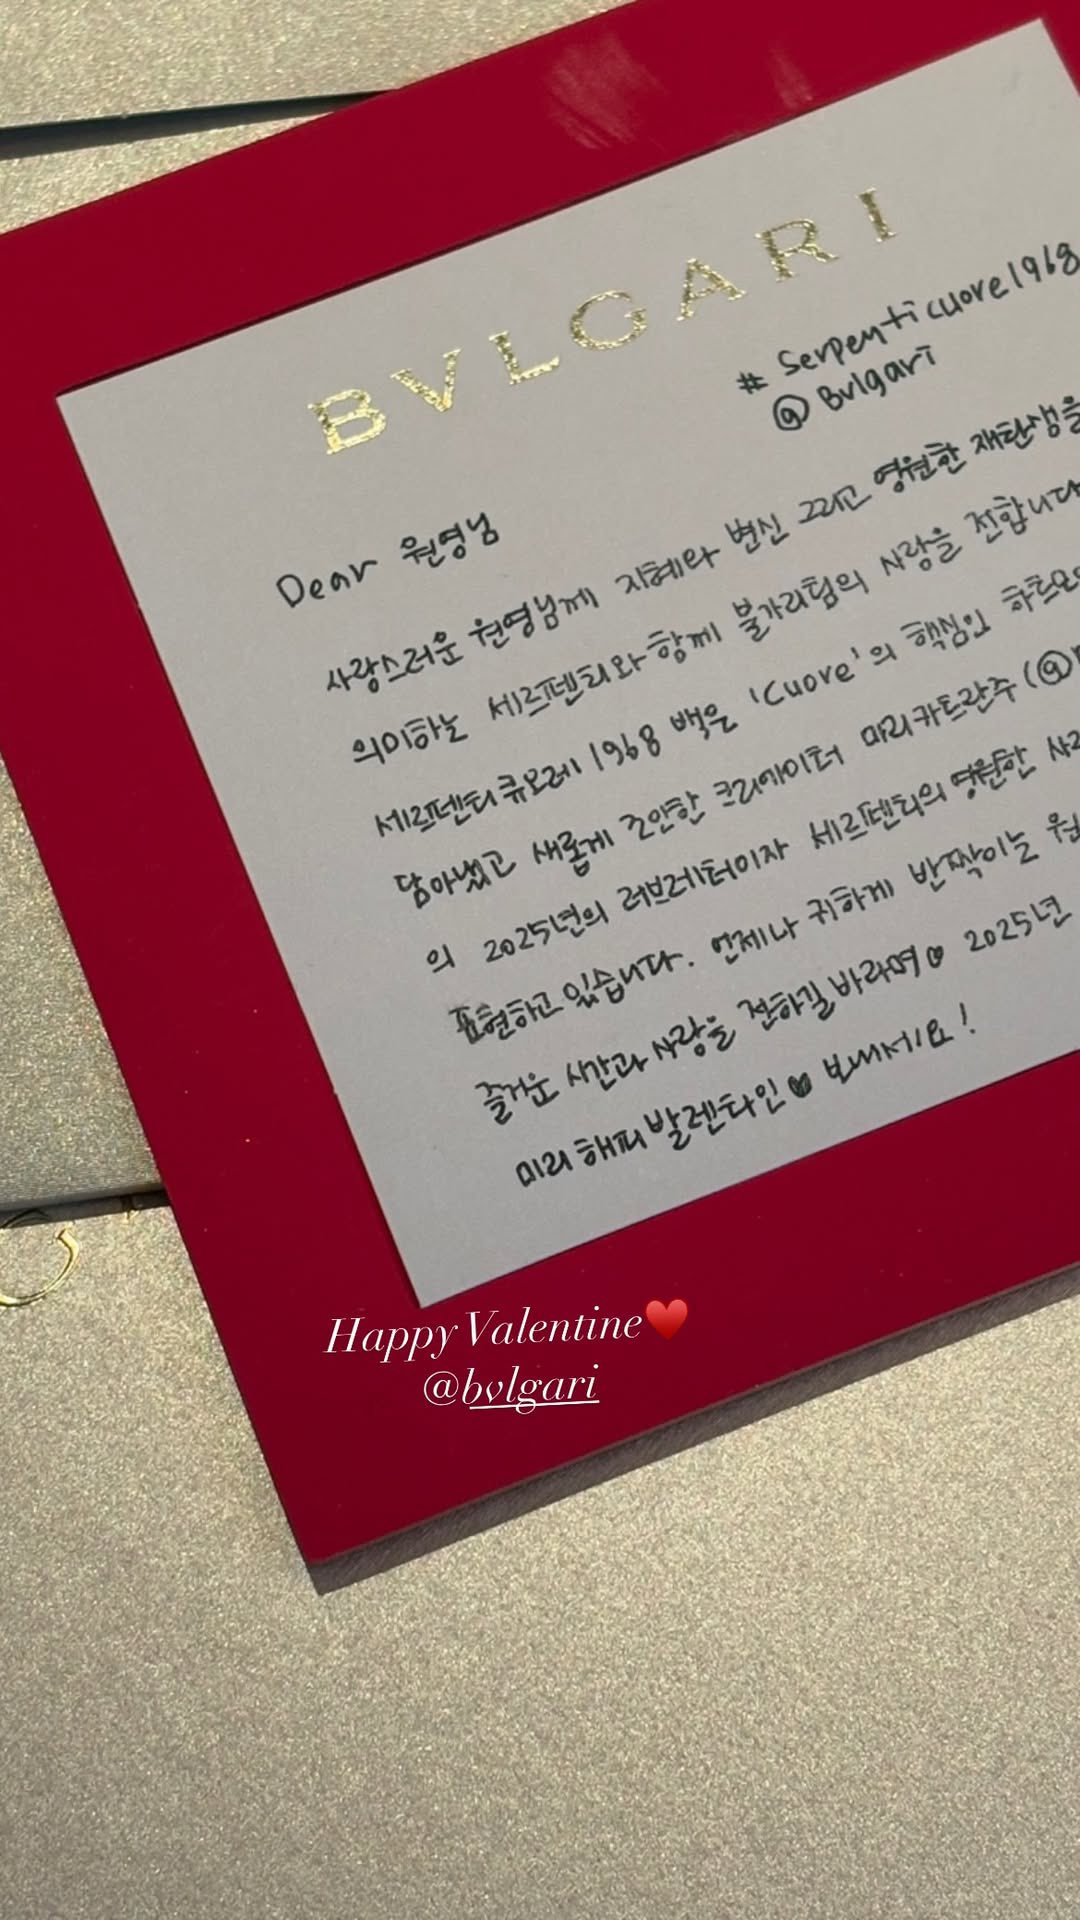 BVLGARI
# Serpenti cuore 1968
@ Bvlgari
Dear 원영님
사랑스러운 원영님께 지혜와 변신 그리고 영원한 재탄생을
의미하는 세르펜티와 함께 불가리팀의 사랑을 전합니다
세르펜티 큐오레 1968 백은 'Cuore'의 핵심인 하트모
담아냈고 새롭게 고안한 크리에이터 마리카트란주 (@
의 2025년의 러브레터이자 세르펜티의 영원한
표현하고 있습니다. 언제나 귀하게 반짝이는 원
즐거운 시간과 사랑을 전하길 바라며♡ 2025년
미리 해피 발렌타인♥ 보내세요!
Happy Valentine♥️
@bvlgari